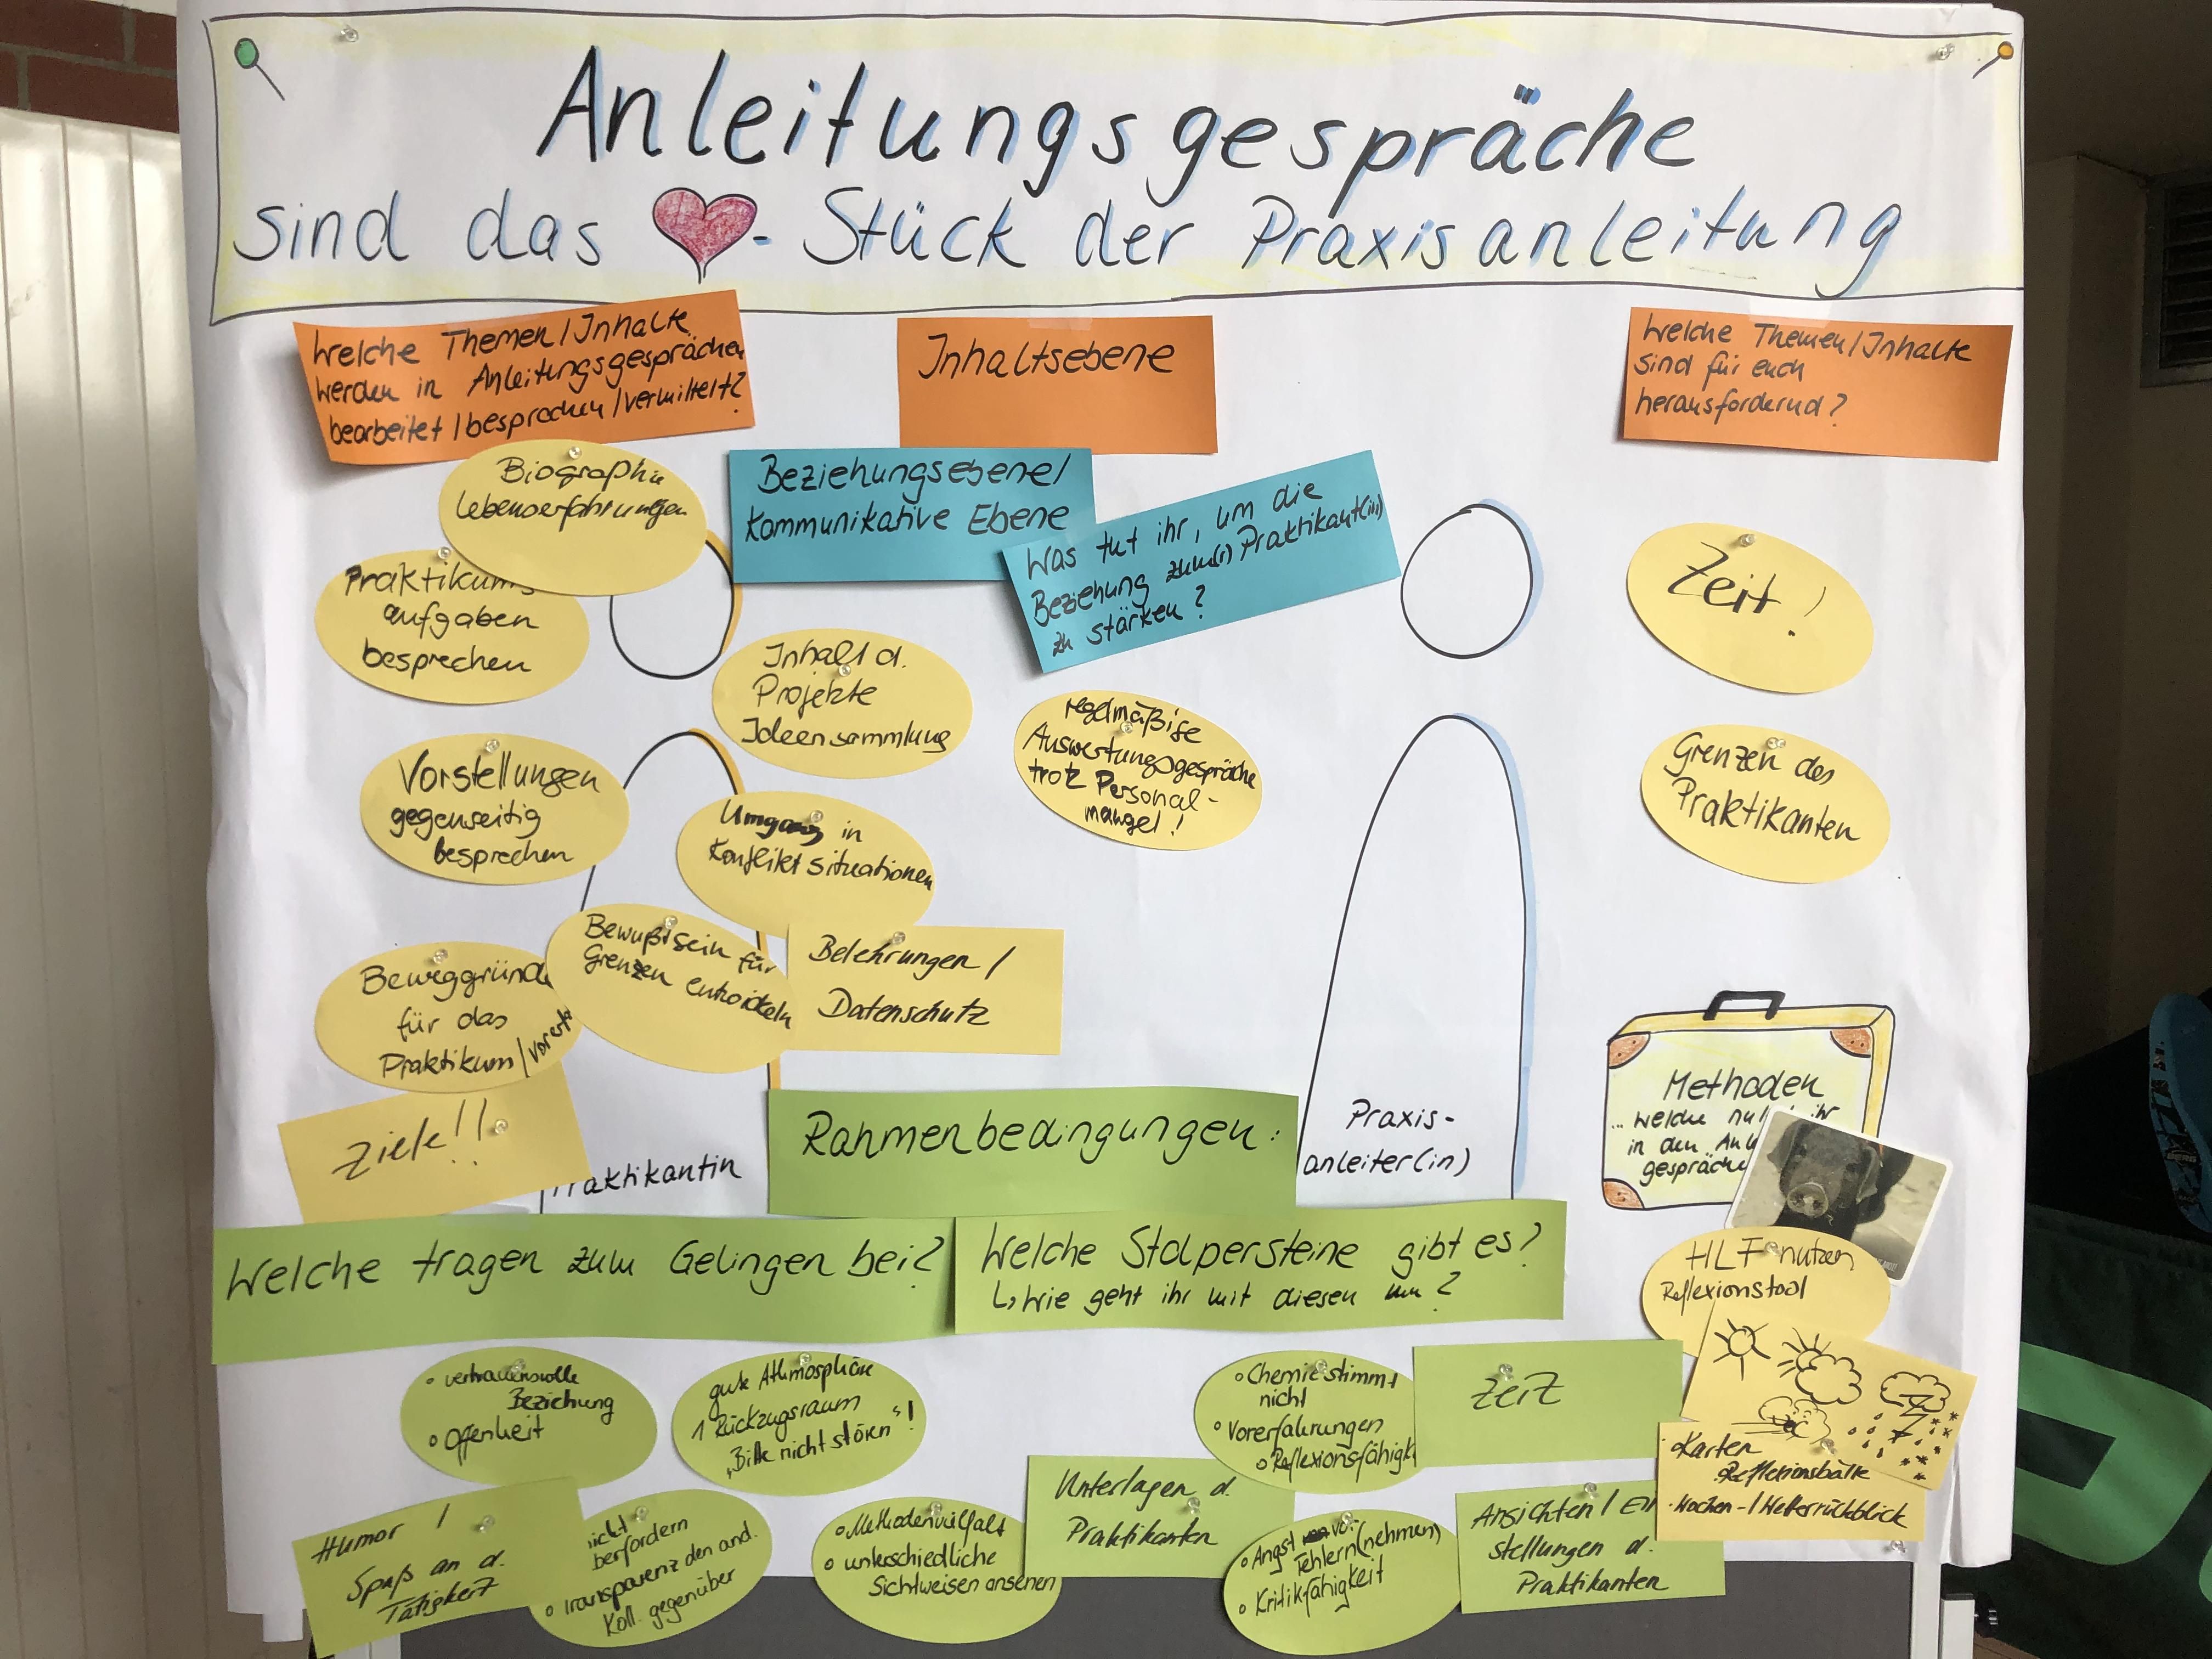 Anleitungsgespräche
sind das
- Stück der Praxisanleitung
Welche Themen/Inhalte
werden in Anleitungsgesprächen
bearbeitet/besprochen/vermittelt?
Inhaltsebene
Welche Themen/Inhalte
sind für euch
herausfordernd?
Biographie
Lebenserfahrungen
Praktikums
aufgaben
besprechen
Beziehungsebene/
Kommunikative Ebene
Was tut ihr, um die
Beziehung zum(r) Praktikant(in)
zu stärken?
Zeit!
Inhalt d.
Projekte
Ideensammlung
regelmäßige
Auswertungsgespräche
trotz Personal-
mangel!
Grenzen des
Praktikanten
Vorstellungen
gegenseitig
besprechen
Umgang in
Konfliktsituationen
Bewußtsein für
Grenzen entwickeln
Belehrungen /
Datenschutz
Beweggründe
für das
Praktikum/
Ziele!!
Praktikantin
Rahmenbedingungen:
Praxis-
anleiter(in)
Methoden
... welche ihr
in den
gespräche
HLF nutzen
Reflexionstool
Welche tragen zum Gelingen bei?
Welche Stolpersteine gibt es?
↳ Wie geht ihr mit diesen um?
• vertrauensvolle
Beziehung
• Offenheit
gute Athmosphäre
1 Rückzugsraum
„Bitte nicht stören“!
• Chemie stimmt
nicht
• Vorerfahrungen
• Reflexionsfähigk
Zeit
• Karten
• Reflexionsbälle
• Wochen-/Wetterrückblick
Humor /
Spaß an d.
Tätigkeit
nicht
berfordern
• Transparenz den and.
Koll. gegenüber
• Methodenvielfalt
• unterschiedliche
Sichtweisen ansehen
Unterlagen d.
Praktikanten
• Angst vor
Fehlern (nehmen)
• Kritikfähigkeit
Ansichten / Ein
stellungen d.
Praktikanten